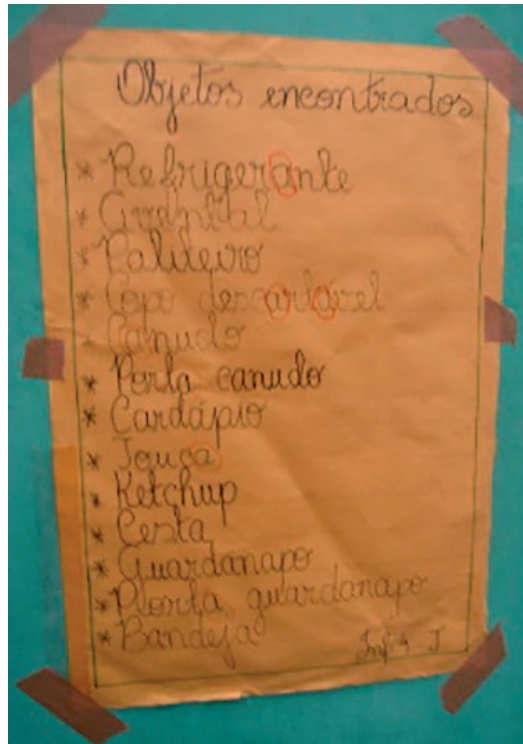 Objetos encontrados
* Refrigerante
* Avental
* Paliteiro
* Copo descartável
* Canudo
* Porta canudo
* Cardápio
* Touca
* Ketchup
* Cesta
* Guardanapo
* Porta guardanapo
* Bandeja
Inf 4 J